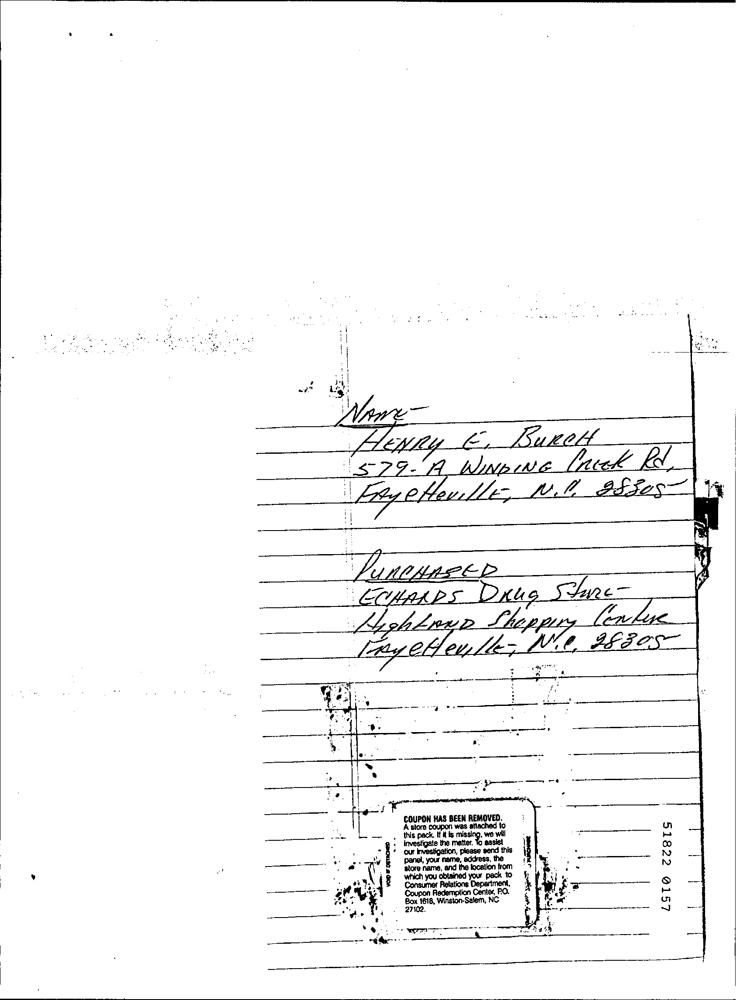 NAME-
HENRY E. BURCH
579-A WINDING CREEK Rd,
FAYETTEVILLE, N.C. 28305
PURCHASED
ECHARDS DRUG STORE-
HIGHLAND Shopping Centure
FAYETTEVILLE, N.C. 28305
COUPON HAS BEEN REMOVED.
A store coupon was attached to
this pack. If it is missing, we will
investigate the matter. To assist
our investigation, please send this
panel, your name, address, the
store name, and the location from
which you obtained your pack to
Consumer Relations Department,
Coupon Redemption Center, P.O.
Box 1618, Winston-Salem, NC
27102.
VOID IF DETACHED
51822 0157